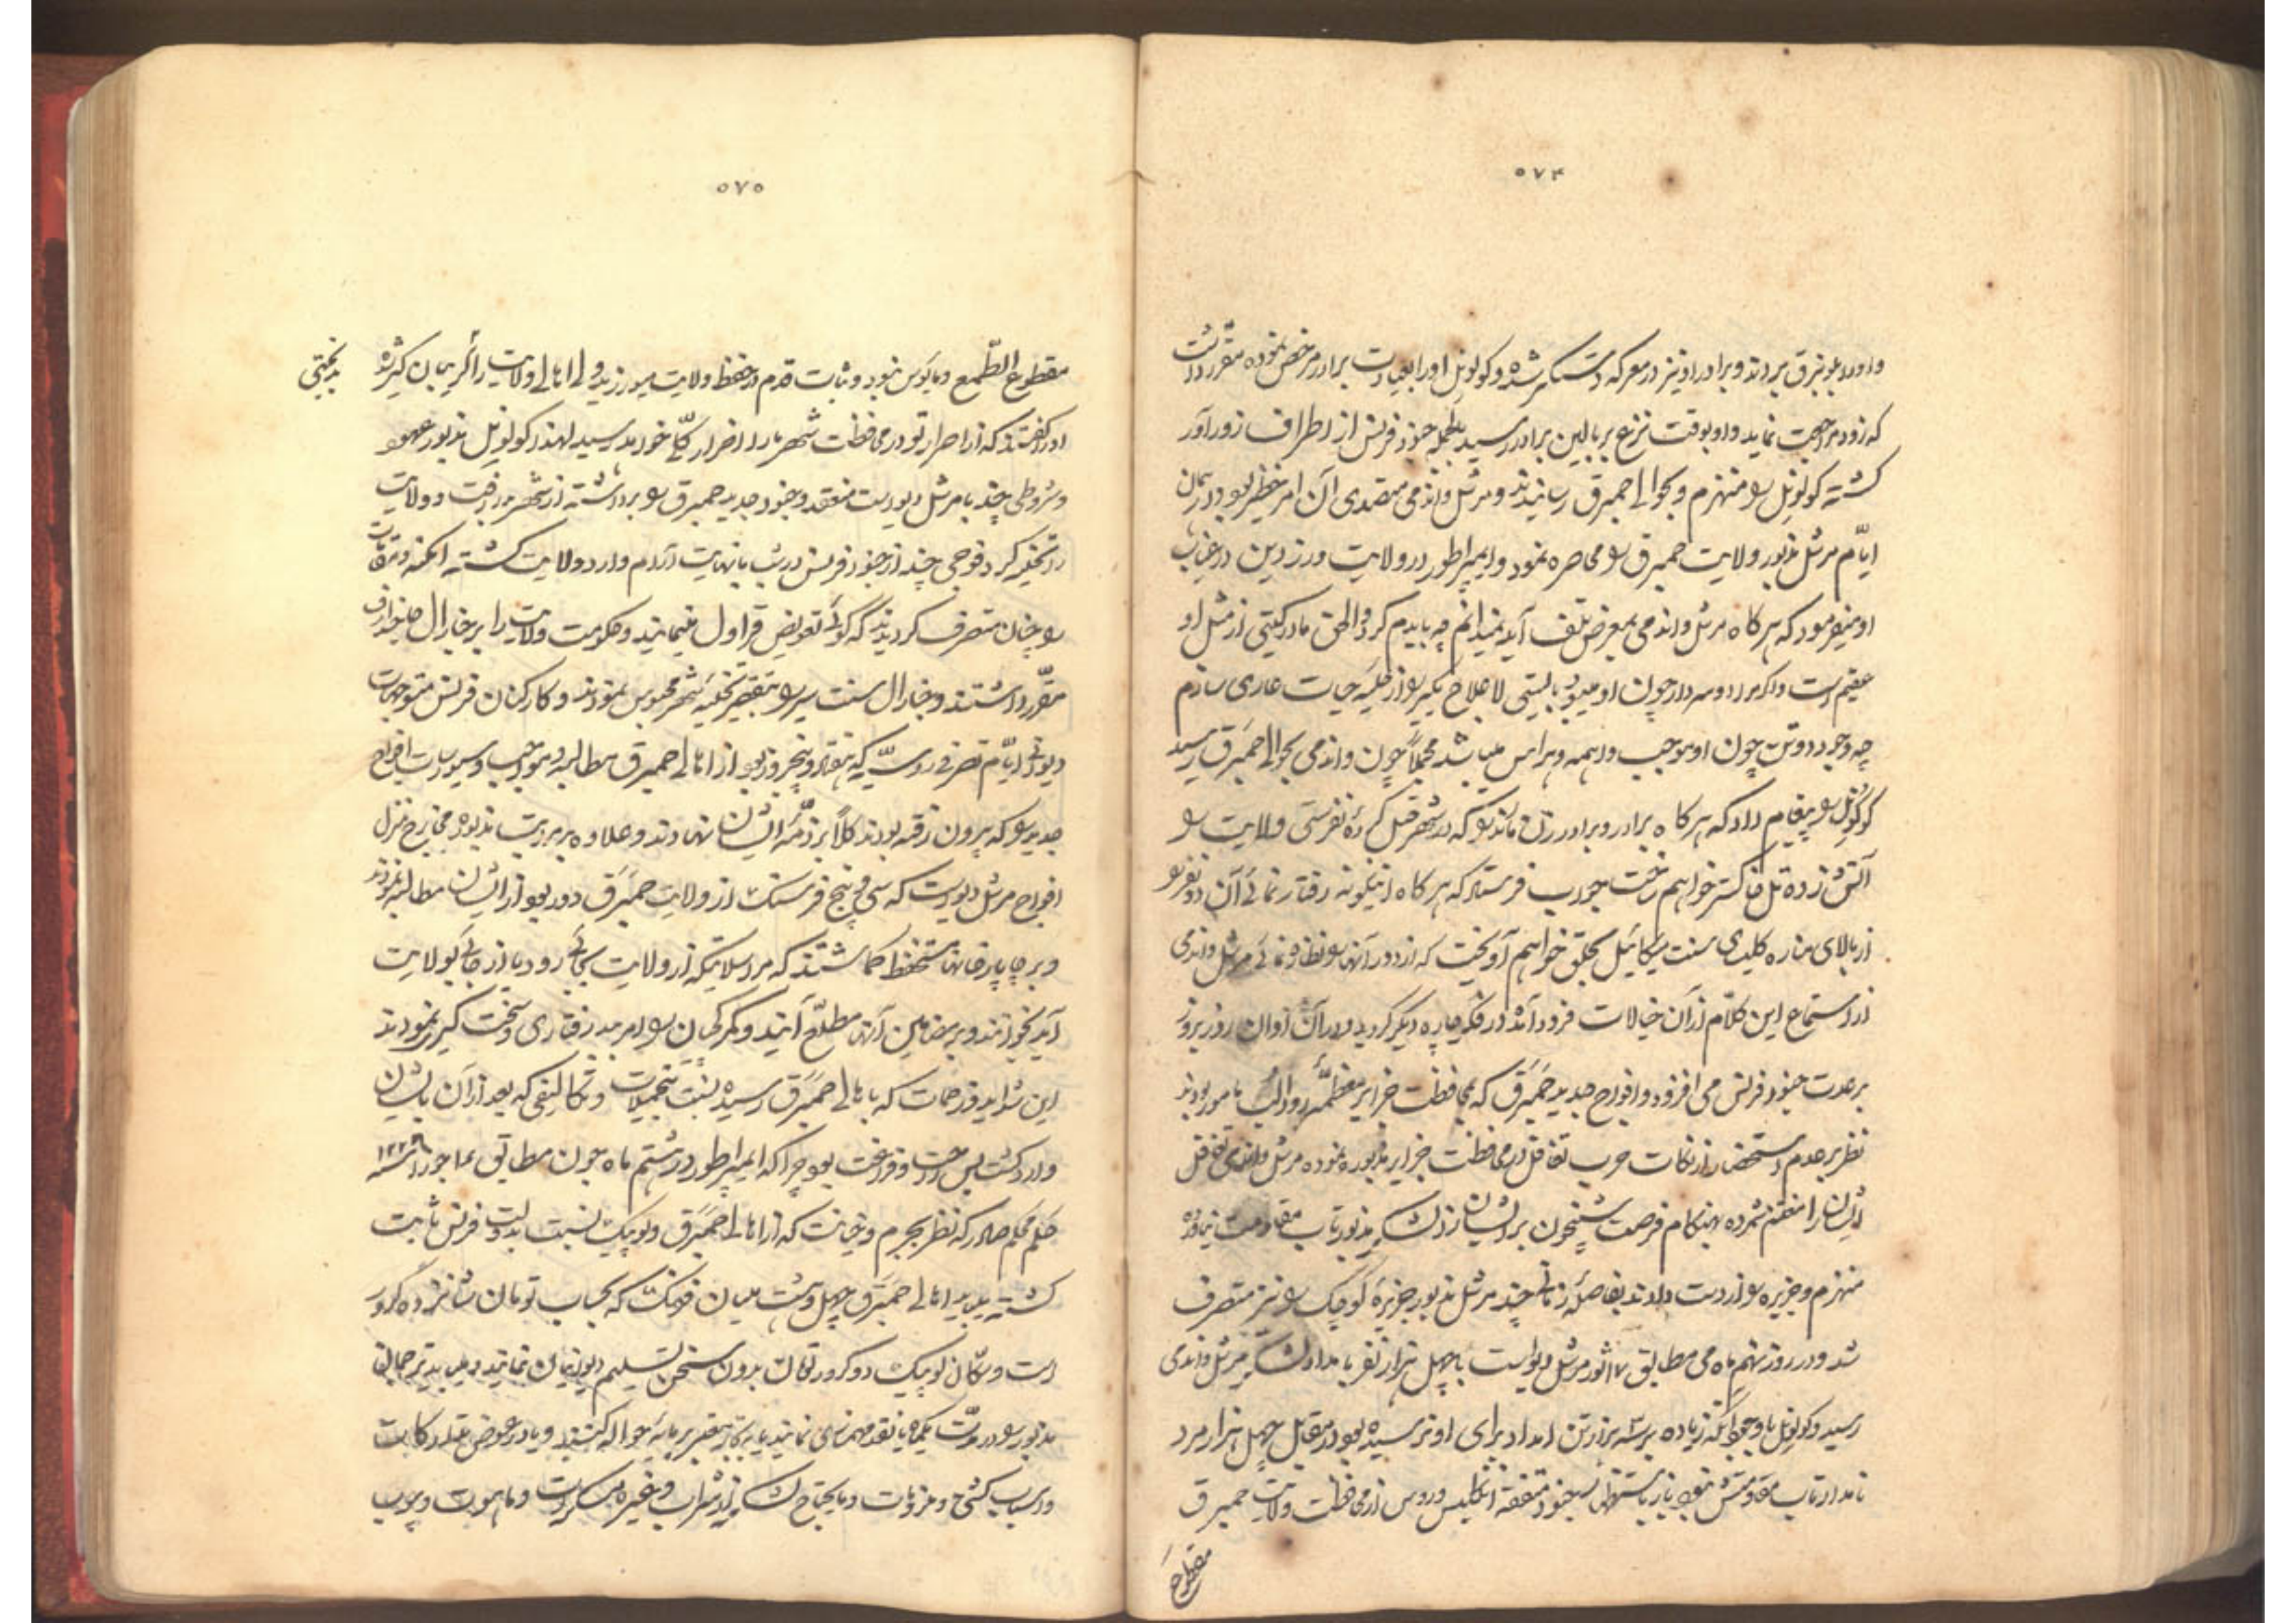 ۵۷۴
و او را بلونبرق بردند و برادر او نیز در معرکه دستگیر شده و کولونل او را بعیادت برادر مرخص نموده مقرر داشت
که زود مراجعت نماید و او بوقت نزع بر بالین برادر رسید بلجمله جنود فرنس از اطراف زورآور
گشته کولونل را منهزم و بحوالی حمبرق رسانیدند و مرشل واندمی متصدی آن امر خطیر بود در همان
ایام مرشل مذبور ولایت حمبرق را محاصره نمود و ایمپراطور در ولایت ورزدین در غیاب
او میفرمود که هرگاه مرشل واندمی بمعرض تلف آید نمیدانم چه بایدم کرد والحق مادر گیتی از مثل او
عقیم است و اگر مرا دو سردار چون او میبود بایستی لاعلاج یکی را از حلیه حیات عاری سازم
چه وجود دو تن چون او موجب واهمه و هراس میباشد مجملاً چون واندمی بحوالی حمبرق رسید
کولونل را پیغام داد که هرگاه برادر و برادر زن ماندگو که در شهر قبل کرده نفرستی ولایت را
آتش زده تل خاکستر خواهم ساخت جواب فرستاد که هرگاه اینگونه رفتار نمائی آن دو نفر را
از بالای مناره کلیسای سنت میکائیل بحلق خواهم آویخت که از دور آنها را نظاره نمائی مرشل واندمی
از استماع این کلام از آن خیالات فرود آمده در فکر چاره دیگر گردید و در آن اوان روز بروز
بر عدت جنود فرنس می افزود و افواج جدید حمبرق که بمحافظت جزایر معظمه و والنب مامور بودند
نظر بعدم استحضار از نکات حرب تغافل در محافظت جزایر مذبوره نموده مرشل واندمی تغافل
ایشان را مغتنم شمرده بهنگام فرصت شبیخون بر ایشان زد لشکر مذبور تاب مقاومت نیاورده
منهزم و جزیره را از دست دادند بفاصله زمانی چند مرشل مذبور جزیره کوچک را نیز متصرف
شد و در روز نهم ماه می مطابق ۱۷ ثور مرشل دیوست با چهل هزار نفر بامداد لشکر مرشل واندمی
رسید و کولونل با وجود آنکه زیاده بر سه هزار تن امداد برای او نرسیده بود در مقابل چهل هزار مرد
نامدار تاب مقاومتش نبود باز باستظهار جنود متفقه انگلیس و روس از محافظت ولایت حمبرق
مقطوع
۵۷۵
مقطوع الطمع و مایوس نبود و ثبات قدم در حفظ ولایت میورزید ولی اهالی ولایت را گریبان گیر شده بدبختی
او را گفتند که از اصرار تو در محافظت شهر ما را اضرار کلی خواهد رسید لهذا کولونل مذبور عهود
و شروطی چند با مرشل دیوست منعقد و جنود جدید حمبرق را برداشته از شهر بدر رفت و ولایت
را تخلیه کرد فوجی چند از جنود فرنس در شب بانهایت آرام وارد ولایت گشته امکنه و ترقات
را چنان متصرف گردیدند که گوئی تعویض قراول مینمایند و حکومت ولایت را بر جنارال
مقرر داشتند و جنارال سنت سیر را بتقصیر تخلیه شهر محبوس نمودند و کارکنان فرنس متوجهات
دیوانی ایام تصرف روسیه که هفتاد و پنج روز بود از اهالی حمبرق مطالبه و مواجب و سیورسات افواج
جدید را که بیرون رفته بودند کلاً بر ذمه ایشان نهادند و علاوه بر مراتب مذبوره مخارج منزل
افواج مرشل دیوست که سی و پنج فرسنگ از ولایت حمبرق دور بود از ایشان مطالبه نمودند
و بر چاپارخانها مستحفظ گماشتند که مراسلاتیکه از ولایت بجائی رود یا از جائی بولایت
آید بخوانند و بر مضامین آنها مطلع آیند و گمرکچیان را امر ببد رفتاری و سخت گیری نمودند
این شداید و زحمات که باهالی حمبرق رسید نسبت بتحمیلات و تکالیفی که بعد از آن بایشان
وارد گشت بس راحت و فراغت بود چرا که ایمپراطور در هشتم ماه جون مطابق ۱۷ جوزا سنه ۱۲۲۸
حکم محکم صادر که نظر بجرم و خیانت که از اهالی حمبرق و لوبیک نسبت بدولت فرنس ثابت
گشته میباید اهالی حمبرق چهل و هشت ملیان فرنک که بحساب تومان شانزده کرور
است و سکان لوبیک دو کرور تومان بدون سخن تسلیم دیوانیان نمایند و میباید ترجمان
مذبور را در مدت یکماه یا نقد مهمسازی نمایند یا بتجار معتبر بر مایه حواله کنند و یا در عوض غله و کتابت
و اسباب کشتی و ملزومات و مایحتاج لشکر از شراب و غیره و مسکرات و ماهوت و چوب